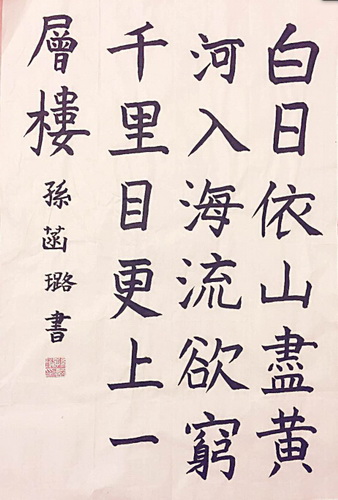 白日依山盡黄
河入海流欲窮
千里目更上一
層樓
孫菡璐書